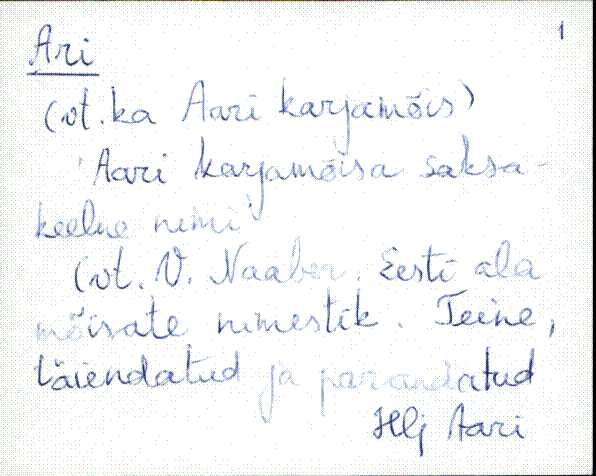 1
Ari
(vt. ka Aari karjamõis)
'Aari karjamõisa saksa-
keelne nimi'
(vt. V. Naaber. Eesti ala
mõisate nimestik. Teine,
täiendatud ja parandatud
Hlj Aari